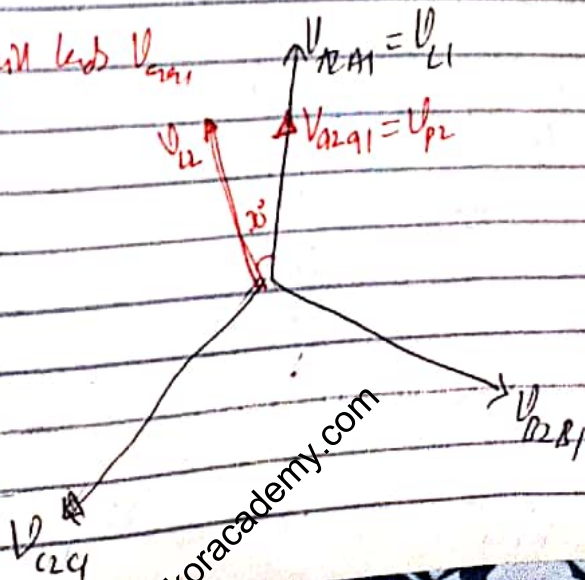 will leads V_a2a1
V_A2A1 = V_L1
V_L2
V_a2a1 = V_P2
30°
V_B2B1
V_C2C1
koracademy.com